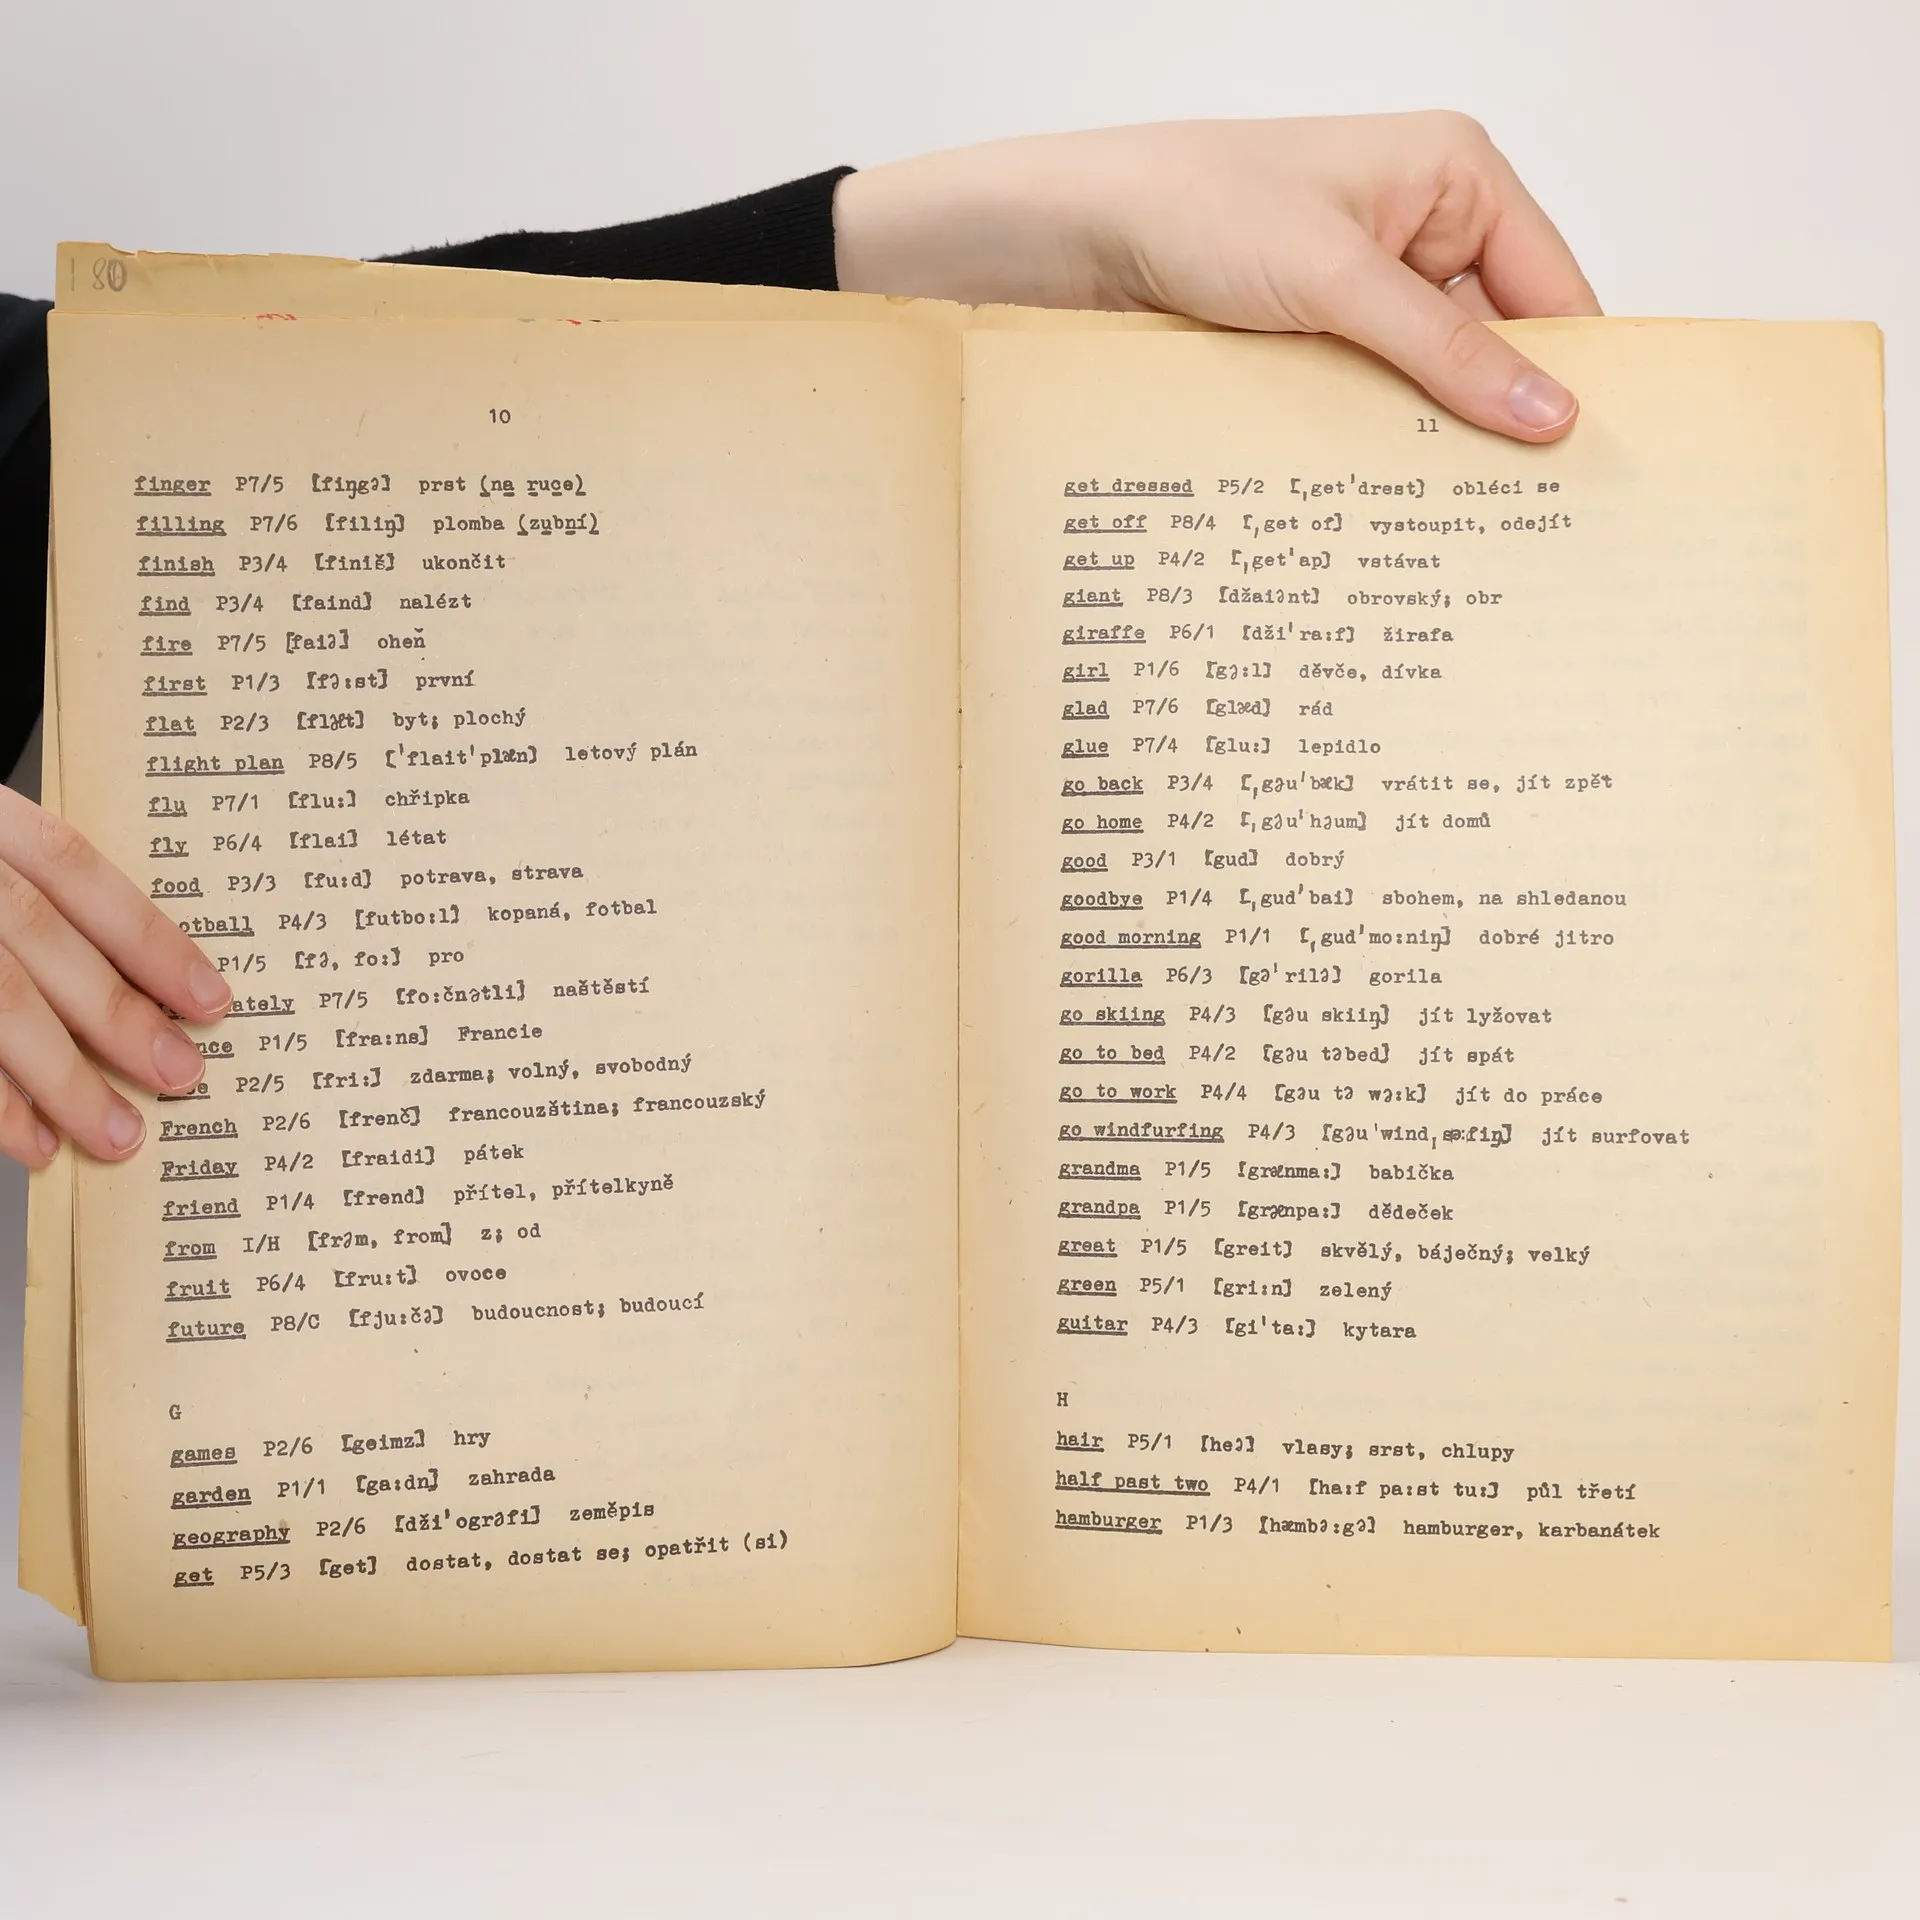 180
10
finger P7/5 [fiŋgə] prst (na ruce)
filling P7/6 [filiŋ] plomba (zubní)
finish P3/4 [finiš] ukončit
find P3/4 [faind] nalézt
fire P7/5 [faiə] oheň
first P1/3 [fə:st] první
flat P2/3 [flæt] byt; plochý
flight plan P8/5 ['flait'plæn] letový plán
flu P7/1 [flu:] chřipka
fly P6/4 [flai] létat
food P3/3 [fu:d] potrava, strava
otball P4/3 [futbo:l] kopaná, fotbal
P1/5 [fə, fo:] pro
ately P7/5 [fo:čnətli] naštěstí
nce P1/5 [fra:ns] Francie
e P2/5 [fri:] zdarma; volný, svobodný
French P2/6 [frenč] francouzština; francouzský
Friday P4/2 [fraidi] pátek
friend P1/4 [frend] přítel, přítelkyně
from I/H [frəm, from] z; od
fruit P6/4 [fru:t] ovoce
future P8/C [fju:čə] budoucnost; budoucí
G
games P2/6 [geimz] hry
garden P1/1 [ga:dn] zahrada
geography P2/6 [dži'ogrəfi] zeměpis
get P5/3 [get] dostat, dostat se; opatřit (si)
11
get dressed P5/2 [ˌget'drest] obléci se
get off P8/4 [ˌget of] vystoupit, odejít
get up P4/2 [ˌget'ap] vstávat
giant P8/3 [džaiənt] obrovský; obr
giraffe P6/1 [dži'ra:f] žirafa
girl P1/6 [gə:l] děvče, dívka
glad P7/6 [glæd] rád
glue P7/4 [glu:] lepidlo
go back P3/4 [ˌgəu'bæk] vrátit se, jít zpět
go home P4/2 [ˌgəu'həum] jít domů
good P3/1 [gud] dobrý
goodbye P1/4 [ˌgud'bai] sbohem, na shledanou
good morning P1/1 [ˌgud'mo:niŋ] dobré jitro
gorilla P6/3 [gə'rilə] gorila
go skiing P4/3 [gəu skiiŋ] jít lyžovat
go to bed P4/2 [gəu təbed] jít spát
go to work P4/4 [gəu tə wə:k] jít do práce
go windfurfing P4/3 [gəu'windˌsə:fiŋ] jít surfovat
grandma P1/5 [grænma:] babička
grandpa P1/5 [grænpa:] dědeček
great P1/5 [greit] skvělý, báječný; velký
green P5/1 [gri:n] zelený
guitar P4/3 [gi'ta:] kytara
H
hair P5/1 [heə] vlasy; srst, chlupy
half past two P4/1 [ha:f pa:st tu:] půl třetí
hamburger P1/3 [hæmbə:gə] hamburger, karbanátek